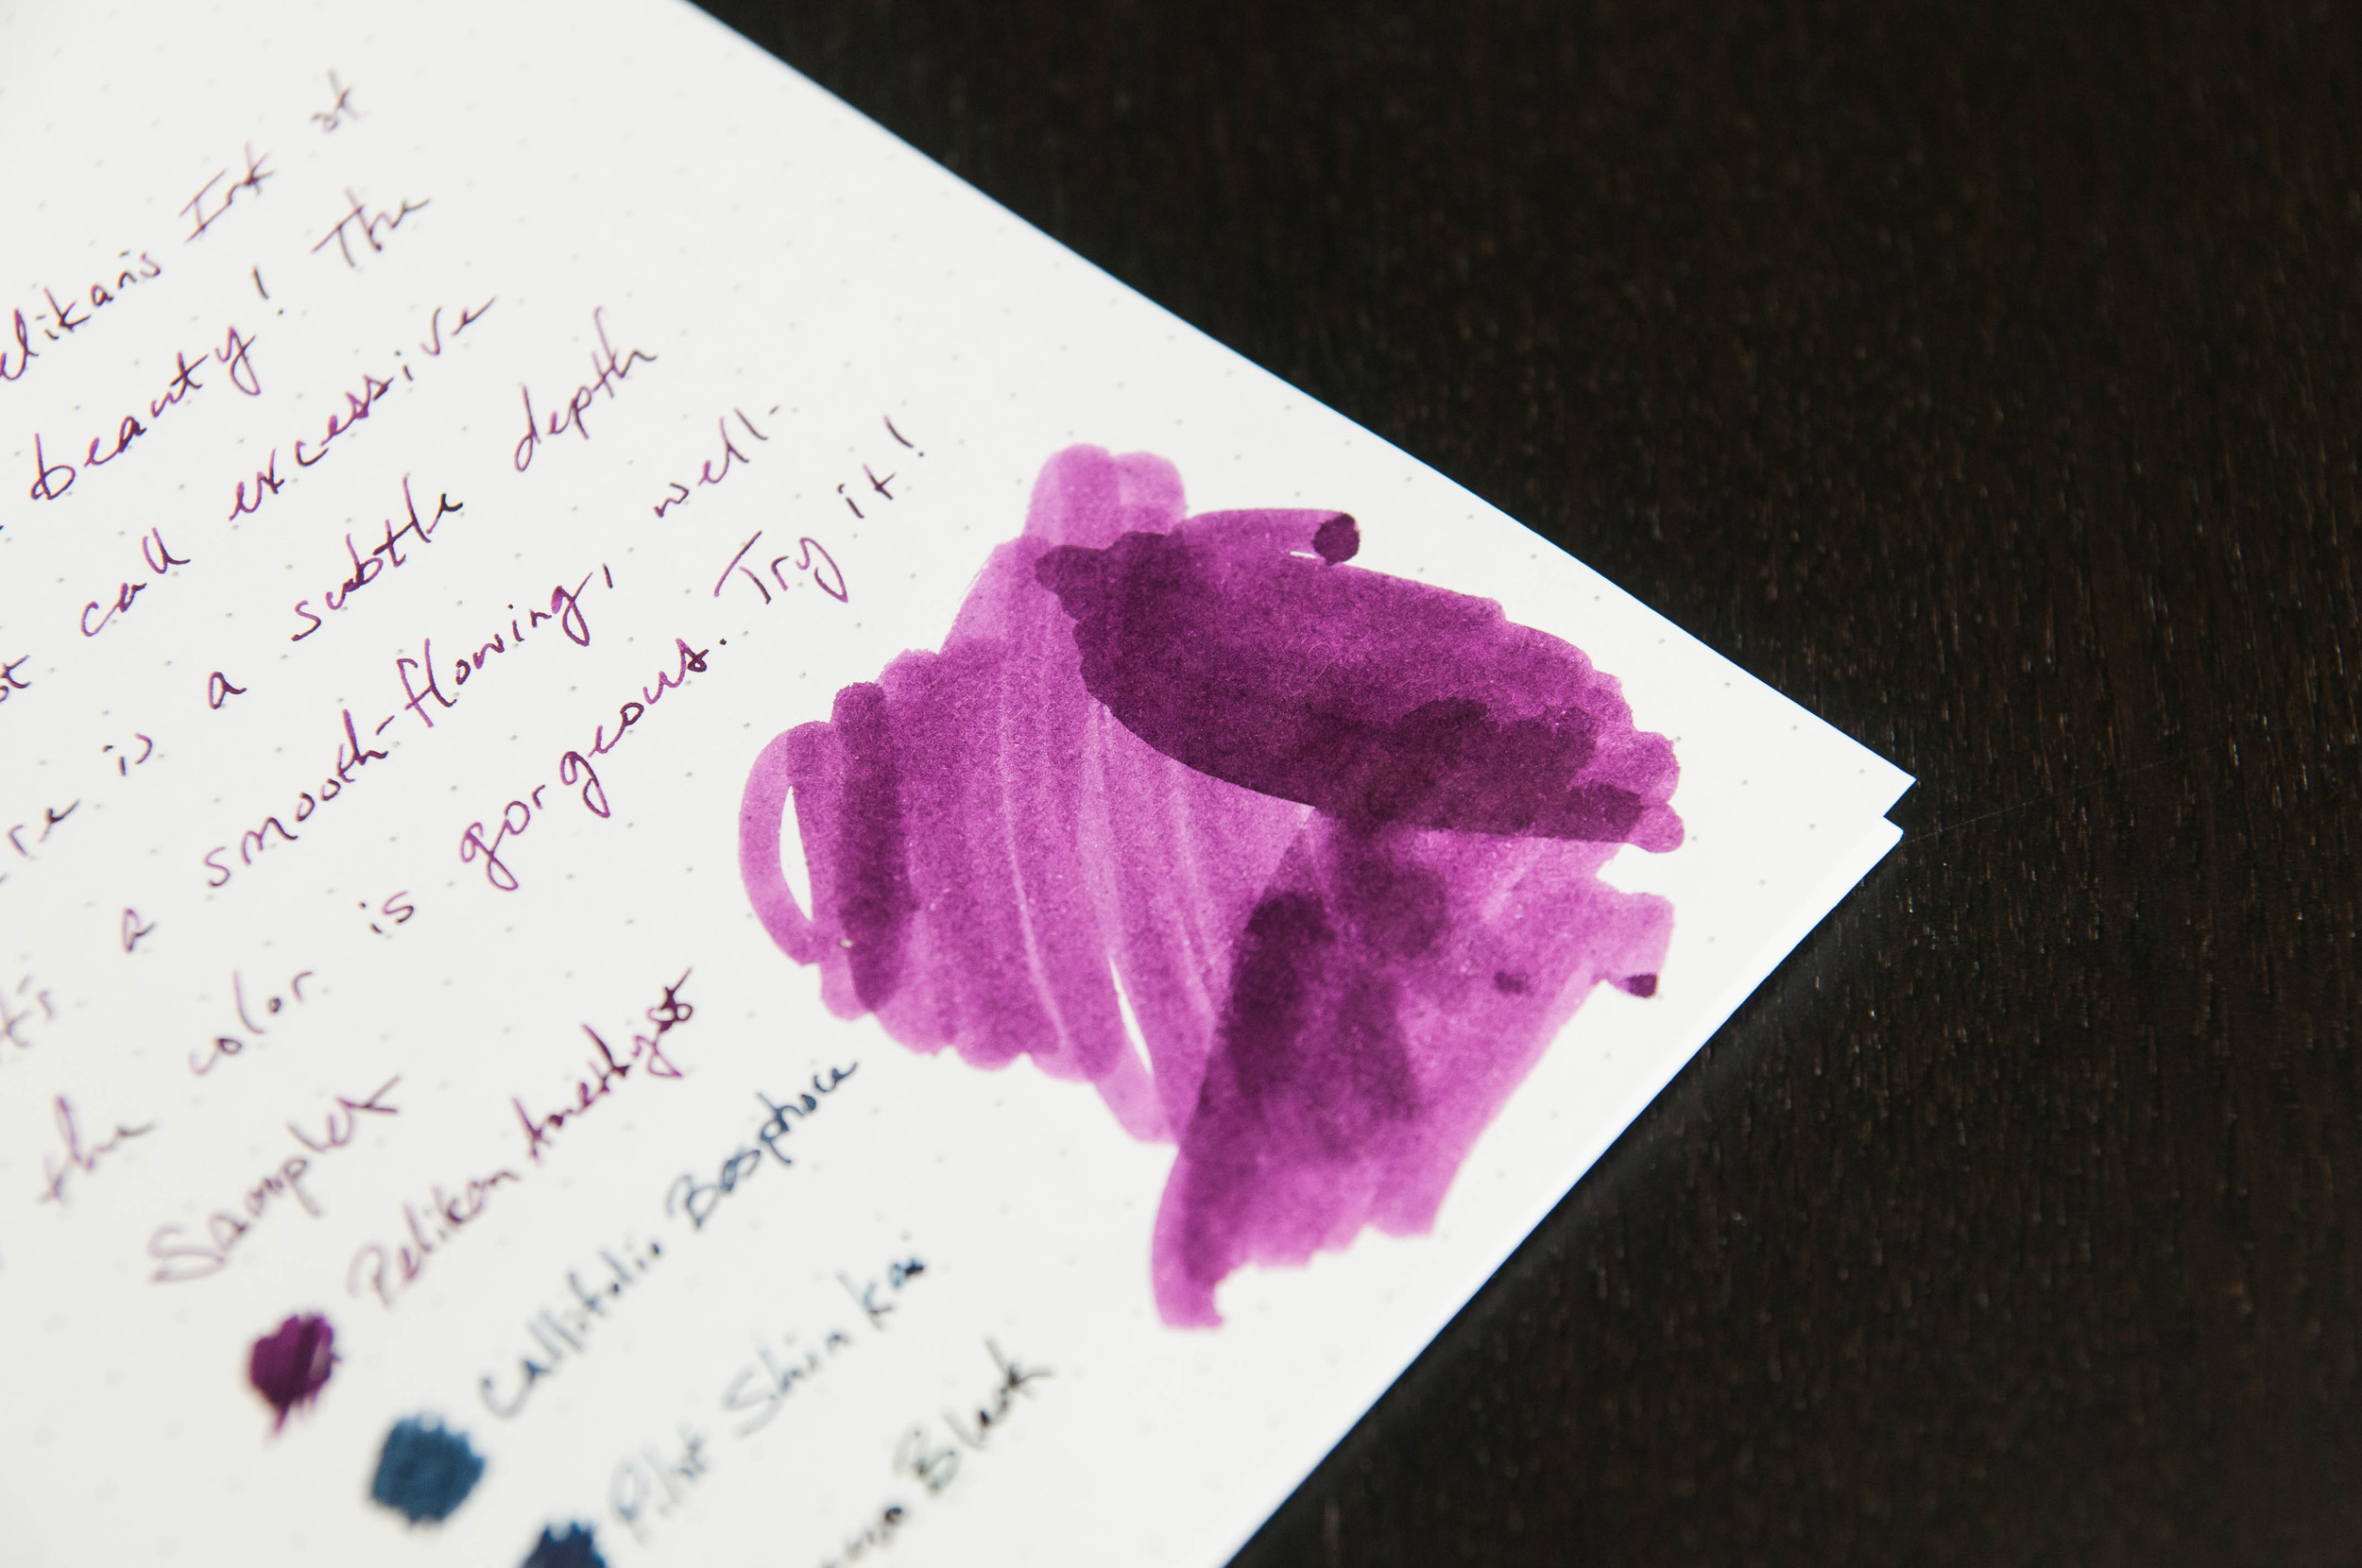 elikan's Ink of
beauty! The
call excessive
re is a subtle depth
t's a smooth-flowing, well-
the color is gorgeous. Try it!
Samples
Pelikan Amethyst
Callifolio Bosphore
Pilot Shin kai
Black